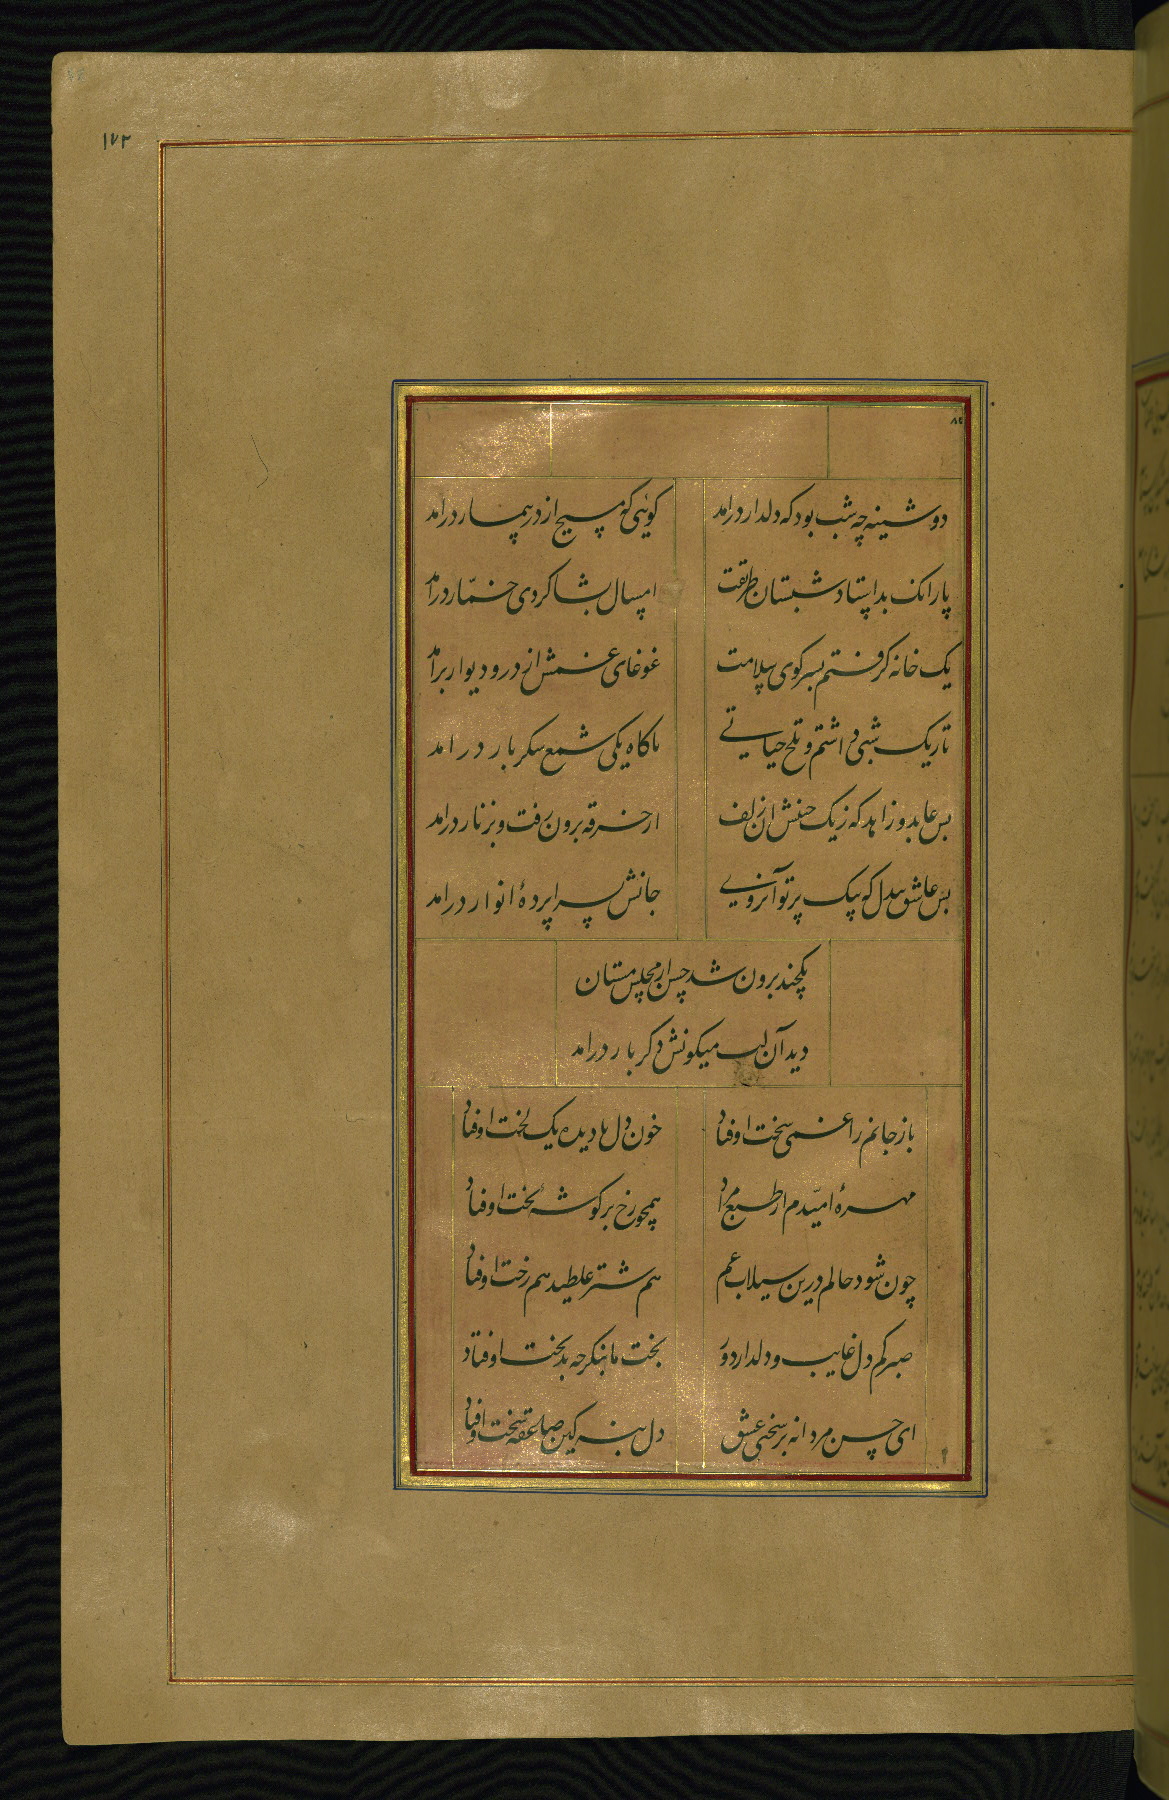 ۱۷۲
دوشینه چه شب بود که دلدار درامد کوئی که مسیح از در بیمار درامد
پار انک بد استاد شبستان طریقت امسال بشاکردی خمّار درامد
یک خانه کرفتم بسر کوی سلامت غوغای غمش از در و دیوار برامد
تاریک شبی داشتم و تلخ حیاتی ناکاه یکی شمع شکر بار درامد
بس عابد و زاهد که ز یک جنبش ان زلف از خرقه برون رفت و بزنار درامد
بس عاشق بیدل که بیک پرتو آنروی جانش بسراپردهٔ انوار درامد
یکچند برون شد حسن از مجلس مستان
دید آن لب میکونش دکر بار درامد
باز جانم را غمی سخت اوفتاد خون دل با دیده یک لخت اوفتاد
مهرهٔ امیّدم از طبع مراد همچو رخ بر کوشهٔ تخت اوفتاد
چون شود حالم درین سیلاب غم هم شتر غلطید هم رخت اوفتاد
صبر کم دل غایب و دلدار دور بخت ما بنکر چه بدبخت اوفتاد
ای حسن مردانه بر سختی عشق دل بنه کین صاعقه سخت اوفتاد